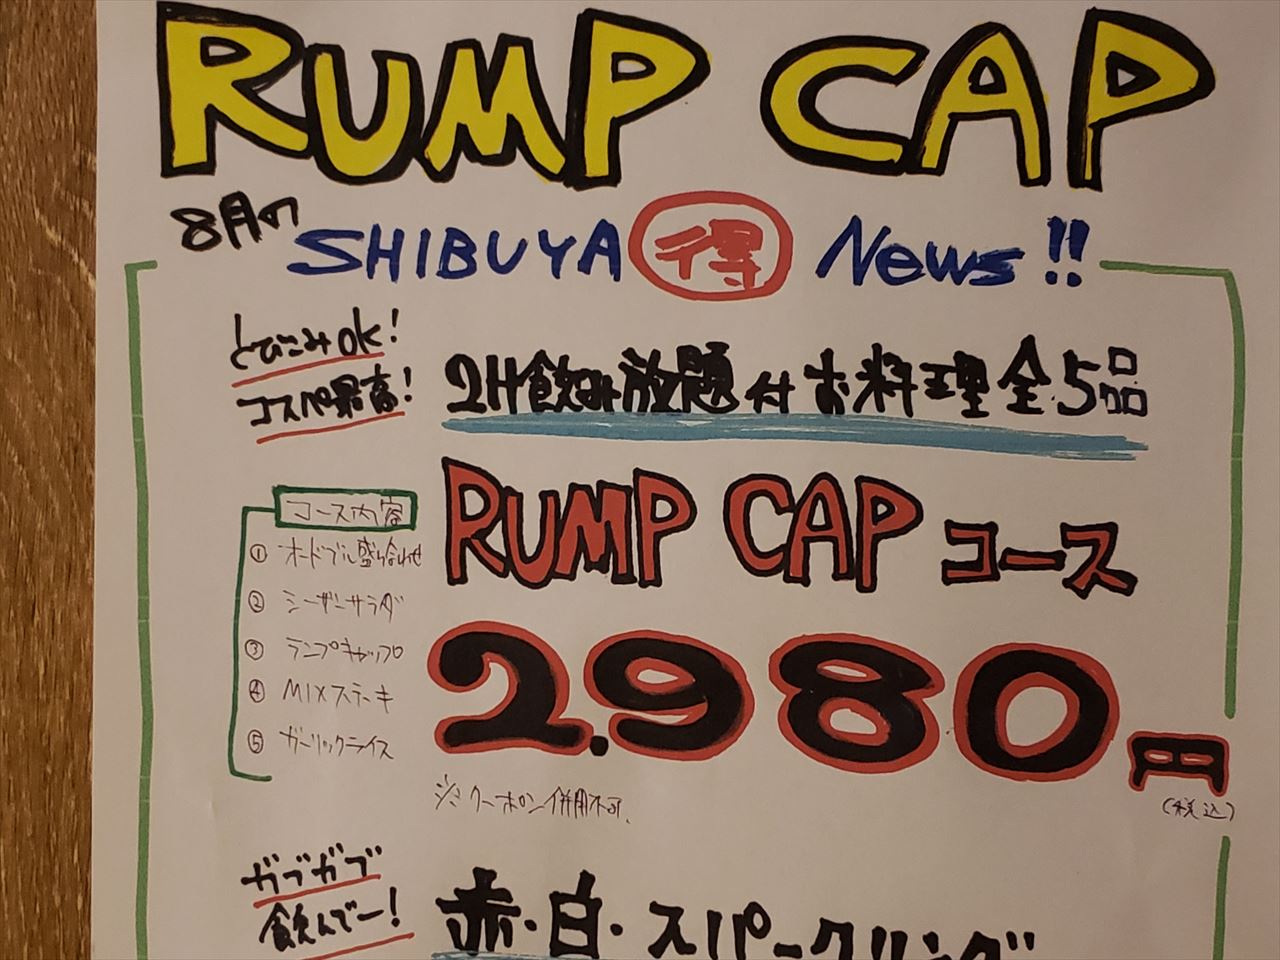 RUMP CAP
8月の SHIBUYA 得 News!!
とびこみOK!
コスパ最高!
2H飲み放題付お料理全5品
RUMP CAPコース
2.980円
(税込)
コース内容
① オードブル盛り合わせ
② シーザーサラダ
③ ランプキャップ
④ MIXステーキ
⑤ ガーリックライス
※クーポン併用不可
ガブガブ
飲んでー!
赤・白・スパークリング